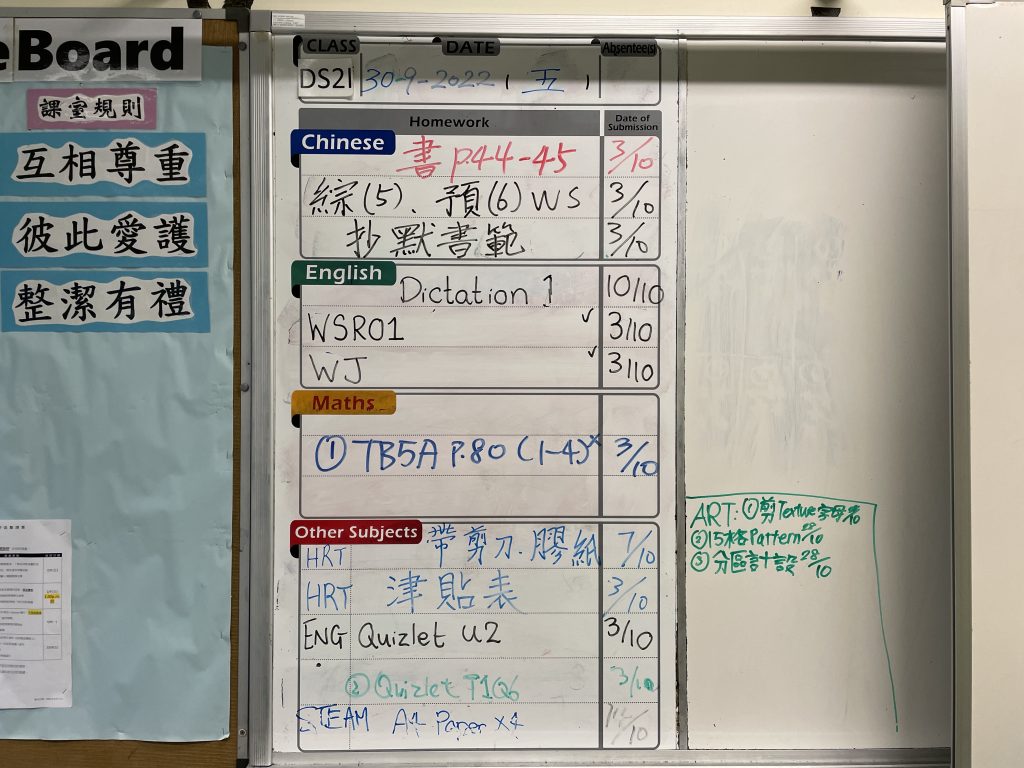 eBoard
課室規則
互相尊重
彼此愛護
整潔有禮
CLASS DATE Absentee(s)
DS21 30-9-2022 ( 五 )
Homework Date of Submission
Chinese
書 P.44-45 3/10
綜(5)、預(6) WS 3/10
抄默書範 3/10
English
Dictation 1 10/10
WSR01 ✓ 3/10
WJ ✓ 3/10
Maths
① TB5A P.80 (1-4) 3/10
Other Subjects
HRT 帶剪刀.膠紙 7/10
HRT 津貼表 3/10
ENG Quizlet U2 3/10
② Quizlet T1Q6 3/10
STEAM A4 Paper x4
ART: ①剪Texture字母名
②15格Pattern /10
③分區計設 28/10